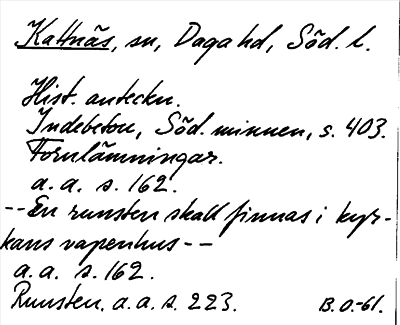 Kattnäs, sn, Daga hd, Söd. l.
Hist. anteckn.
Indebetou, Söd. minnen, s. 403.
Fornlämningar.
a. a. s. 162.
--En runsten skall finnas i kyr-
kans vapenhus--
a. a. s. 162.
Runsten. a. a. s. 223. B.O.-61.